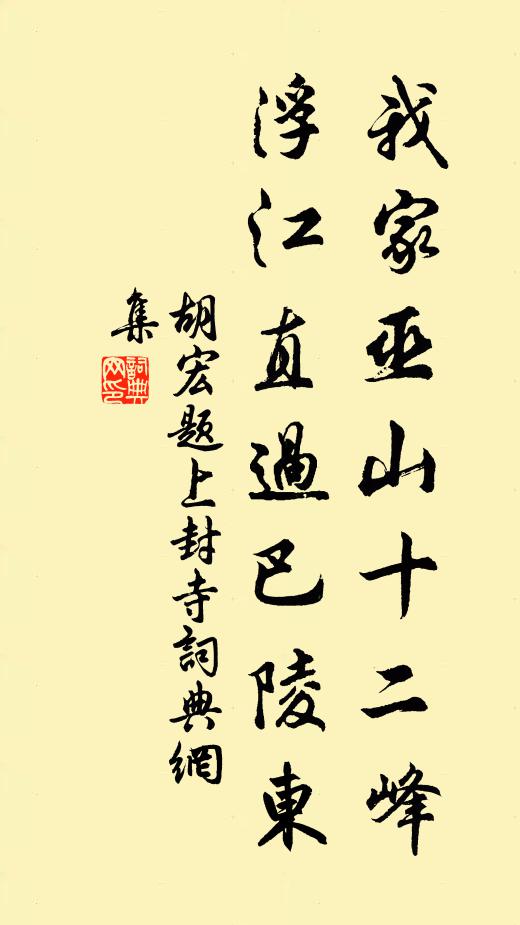 我家巫山十二峰
浮江直過巴陵東
胡宏題上封寺詞典網
集
詞典網印